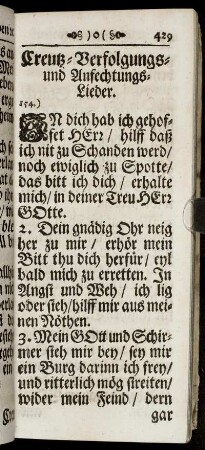 )o( 429
Creutz-Verfolgungs-
und Anfechtungs-
Lieder.
154.)
IN dich hab ich gehof-
fet HErr/ hilff daß
ich nit zu Schanden werd/
noch ewiglich zu Spotte/
das bitt ich dich/ erhalte
mich/ in deiner Treu HErr
GOtte.
2. Dein gnädig Ohr neig
her zu mir/ erhör mein
Bitt thu dich herfür/ eyl
bald mich zu erretten. In
Angst und Weh/ ich lig
oder steh/ hilff mir aus mei-
nen Nöthen.
3. Mein GOtt und Schir-
mer steh mir bey/ sey mir
ein Burg darinn ich frey/
und ritterlich mög streiten/
wider mein Feind/ dern
gar